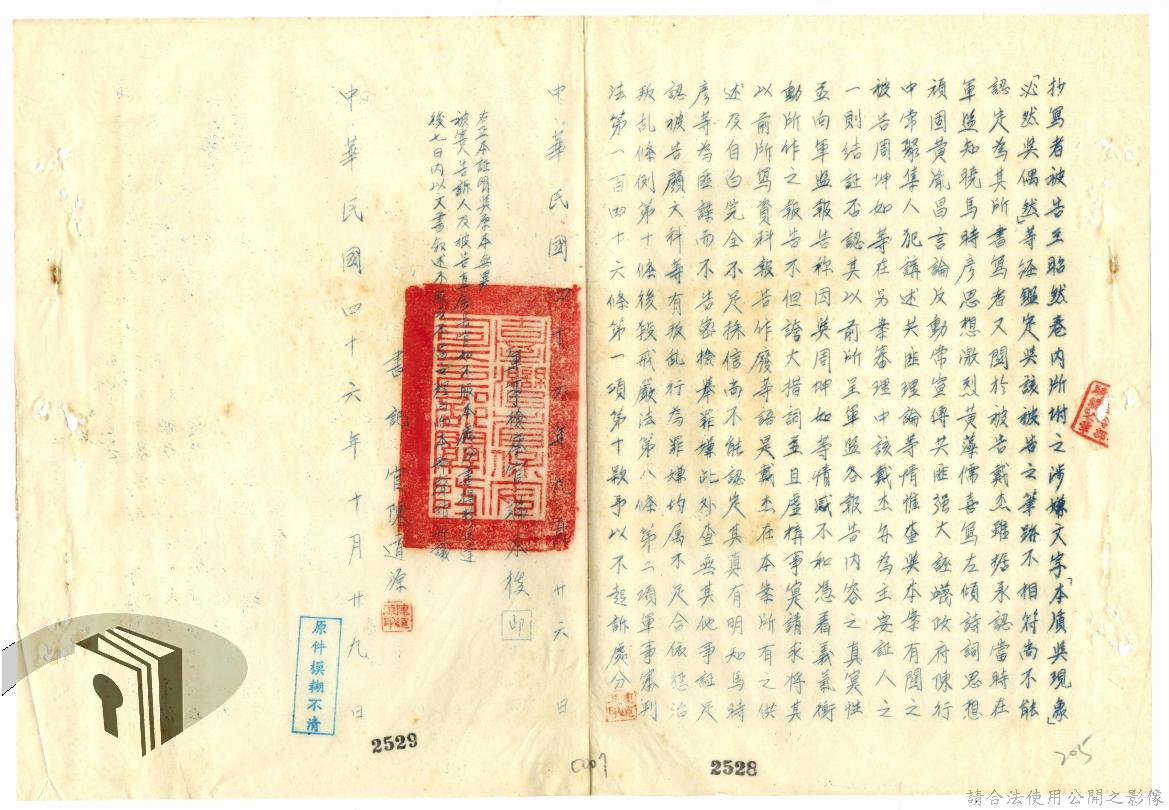 抄寫者被告至昭然卷內所附之涉嫌文字「本質與現象」
「必然與偶然」等經鑑定與該被告之筆跡不相符尚不能
認定為其所書寫者又關於被告戴杰雖據承認當時在
軍監知曉馬時彥思想激烈黃藻儒喜寫左傾詩詞思想
頑固黃胤昌言論反動常宣傳共匪强大誣衊政府陳行
中常聚集人犯講述共匪理論等情惟查與本案有關之
被告周坤如等在另案審理中該戴杰亦為主要証人之
一則結証否認其以前所呈軍監各報告內容之真實性
並向軍監報告称因與周坤如等情感不和憑着義氣衝
動所作之報告不但誇大措詞並且虛構事實請求將其
以前所寫資料報告作廢等語是戴杰在本案所有之供
述及自白完全不足採信尚不能認定其真有明知馬時
彥等為匪諜而不告密檢舉罪嫌此外查無其他事証足
認被告顏文科等有叛乱行為罪嫌均属不足合依懲治
叛乱條例第十條後段戒嚴法第八條第二項軍事審判
法第一百四十六條第一項第十款予以不起訴處分
中華民國四十六年九月廿六日
軍事檢察官 本 俊 印
右正本証明與原本無異
被害人告訴人及被告直屬長官如不服本處分書得於送達
後七日內以文書敘述不服之
書記官陳道源
中華民國四十六年十月廿九日
原件模糊不清
2529
2528
205
請合法使用公開之影像